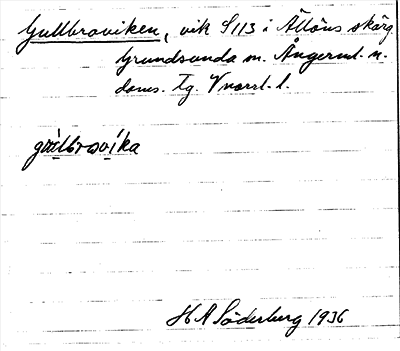 Gullbroviken, vik S 113 i Ållöns skärg
Grundsunda sn. Ångerml. n.
doms. tg. Vnorrl. l.
gullbrovika
H A Söderberg 1936